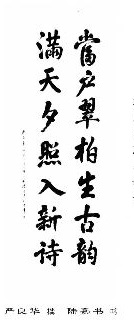 當户翠柏生古韵
滿天夕照入新诗
严良华 撰 陆嘉书 书